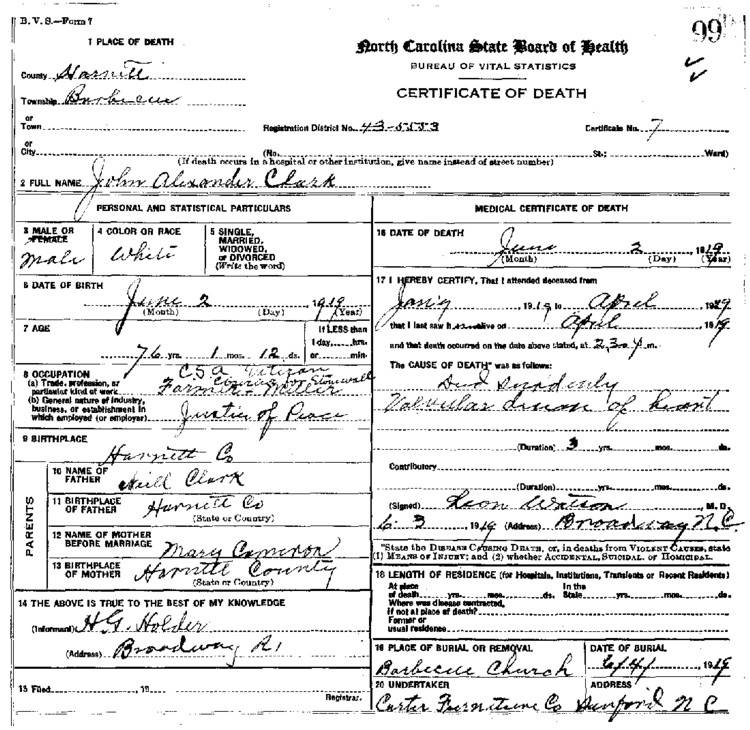 B. V. S.—Form 7
99
1 PLACE OF DEATH
North Carolina State Board of Health
BUREAU OF VITAL STATISTICS
CERTIFICATE OF DEATH
County Harnett
Township Barbecue
or Town
Registration District No. 43-5553
Certificate No. 7
or City
(No.
St.;
Ward)
(If death occurs in a hospital or other institution, give name instead of street number)
2 FULL NAME John Alexander Clark
PERSONAL AND STATISTICAL PARTICULARS
3 MALE OR FEMALE
Male
4 COLOR OR RACE
White
5 SINGLE, MARRIED, WIDOWED, or DIVORCED
(Write the word)
6 DATE OF BIRTH
June 2 1919
(Month) (Day) (Year)
7 AGE
76 yrs. 1 mos. 12 ds.
If LESS than
1 day, hrs.
or min.
8 OCCUPATION
(a) Trade, profession, or particular kind of work
(b) General nature of industry, business, or establishment in which employed (or employer)
C.S.A. Veteran
Stonewall
Farmer
Justice of Peace
9 BIRTHPLACE
Harnett Co
PARENTS
10 NAME OF FATHER
Neill Clark
11 BIRTHPLACE OF FATHER
Harnett Co
(State or Country)
12 NAME OF MOTHER BEFORE MARRIAGE
Mary Cameron
13 BIRTHPLACE OF MOTHER
Harnett County
(State or Country)
14 THE ABOVE IS TRUE TO THE BEST OF MY KNOWLEDGE
(Informant) H.G. Holder
(Address) Broadway R1
15 Filed , 19
Registrar.
MEDICAL CERTIFICATE OF DEATH
16 DATE OF DEATH
June 2 1919
(Month) (Day) (Year)
17 I HEREBY CERTIFY, That I attended deceased from
1919 to April 1919
that I last saw h alive on April 1919
and that death occurred on the date above stated, at m.
The CAUSE OF DEATH* was as follows:
Died Suddenly
Valvular disease of heart
(Duration) 3 yrs. mos. ds.
Contributory
(Duration) yrs. mos. ds.
(Signed) Leon Watson, M. D.
6-3 1919 (Address) Broadway N.C.
*State the DISEASE CAUSING DEATH, or, in deaths from VIOLENT CAUSES, state
(1) MEANS OF INJURY; and (2) whether ACCIDENTAL, SUICIDAL, or HOMICIDAL.
18 LENGTH OF RESIDENCE (for Hospitals, Institutions, Transients or Recent Residents)
At place of death yrs. mos. ds.
In the State yrs. mos. ds.
Where was disease contracted,
if not at place of death?
Former or
usual residence
19 PLACE OF BURIAL OR REMOVAL
Barbecue Church
DATE OF BURIAL
6/4/, 1919
20 UNDERTAKER
Carter Furniture Co
ADDRESS
Sanford N C